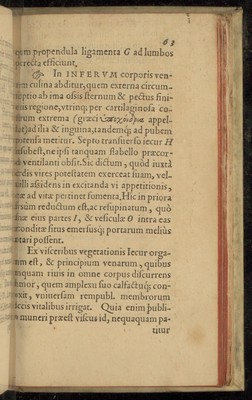 63
propendula ligamenta G ad lumbos
porrecta efficiunt.
In INFERVM corporis ven-
culina abditur, quem externa circum-
scriptio ab ima ossis sternum & pectus fini-
regione, vtrinq; per cartilaginosa co-
extrema (græci appel-
ad ilia & inguina, tandemq; ad pubem
metitur. Septo transuerso iecur H
subest, ne ipsi tanquam flabello præcor-
ventilanti obsit. Sic dictum, quòd iuxtà
vires potestatem exerceat suam, vel-
assidens in excitanda vi appetitionis,
ad vitæ pertinet fomenta. Hic in priora
reductum est, ac resupinatum, quò
eius partes I, & vesiculæ O intra eas
conditæ situs emersusq; portarum meliùs
possent.
Ex visceribus vegetationis Iecur orga-
est, & principium venarum, quibus
tanquam riuis in omne corpus discurrens
humor, quem amplexu suo calfactúq; con-
vniuersam rempubl. membrorum
vitalibus irrigat. Quia enim publi-
muneri præest viscus id, nequaquam pa-
titur